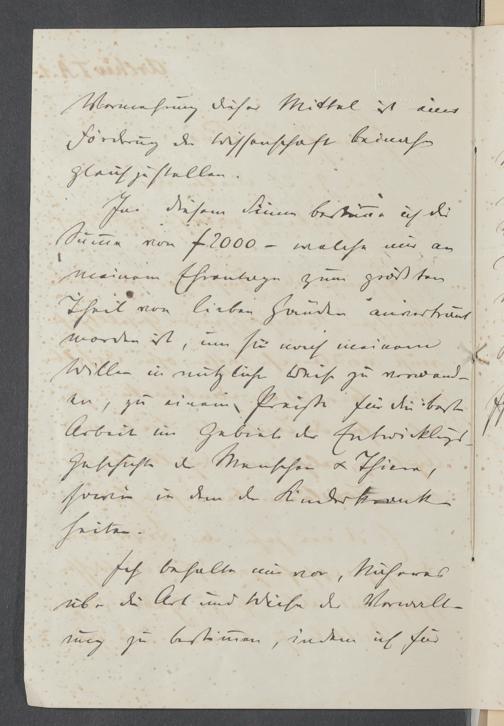 Vermehrung dieser Mittel ist einer
Förderung der Wissenschaft beinah
gleichzustellen.
In diesem Sinne bestimme ich die
Summe von f 2000 – welche mir an
meinem Ehrentage zum größten
Theil von lieben Händen anvertraut
worden ist, um sie nach meinem
Willen in nützlicher Weise zu verwend-
en, zu einem Preise für die beste
Arbeit im Gebiete der Entwicklungs-
geschichte der Menschen & Thiere,
sowie in dem der Kinderkrank-
heiten.
Ich behalte mir vor, Näheres
über die Art und Weise der Verwalt-
ung zu bestimmen, indem ich für